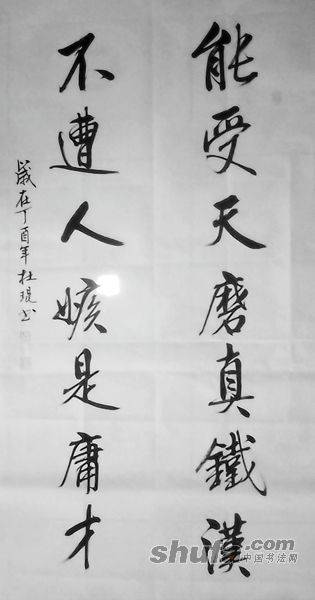 能受天磨真鐵漢
不遭人嫉是庸才
歲在丁酉年杜琨书
shufa.com
中国书法网